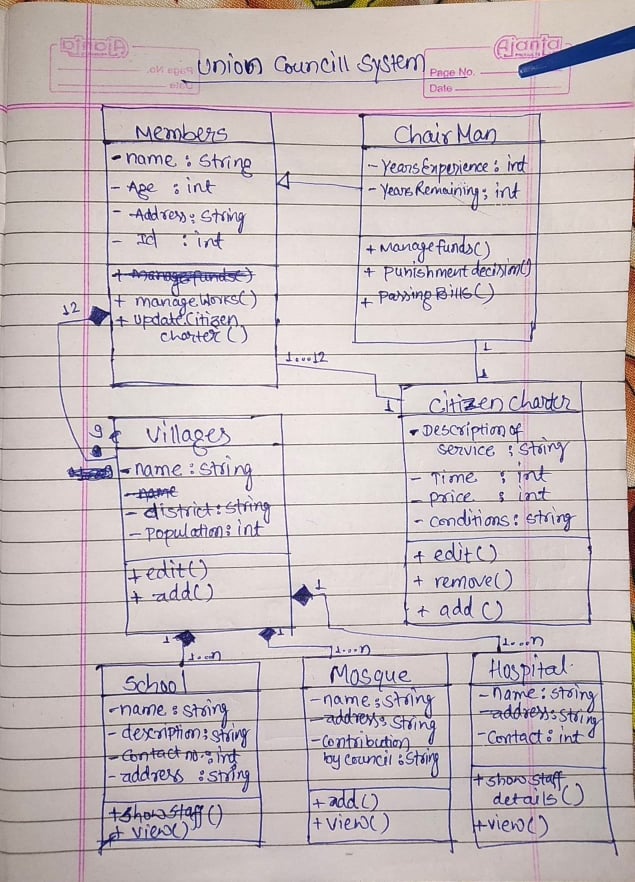 Union Councill System
Ajanta
Page No.
Date
Members
- name : String
- Age : int
- Address : String
- Id : int
+ Managefunds()
+ manageWorks()
+ Update Citizen
charter ()
Chair Man
- YearsExperience : int
- YearsRemaining : int
+ Managefunds()
+ Punishment decision()
+ Passing Bills()
12
1...12
1
1
1
Citizen Charter
- Description of
service : String
- Time : int
- Price : int
- conditions : string
+ edit()
+ remove()
+ add ()
9
Villages
- name : String
- name
- district : string
- population : int
+ edit()
+ add()
1
1
1
1...n
1...n
1...n
School
- name : string
- description : string
- contact no. : int
- address : string
+ show staff ()
+ view()
Mosque
- name : string
- address : string
- contribution
by council : String
+ add()
+ view()
Hospital
- Name : string
- address : string
- Contact : int
+ show staff
details ()
+ view()